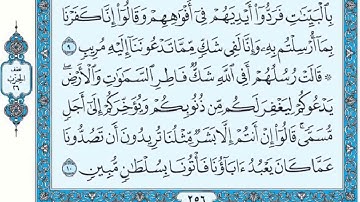 بِٱلْبَيِّنَٰتِ فَرَدُّوٓا۟ أَيْدِيَهُمْ فِىٓ أَفْوَٰهِهِمْ وَقَالُوٓا۟ إِنَّا كَفَرْنَا
بِمَآ أُرْسِلْتُم بِهِۦ وَإِنَّا لَفِى شَكٍّ مِّمَّا تَدْعُونَنَآ إِلَيْهِ مُرِيبٍ ٩
۞ قَالَتْ رُسُلُهُمْ أَفِى ٱللَّهِ شَكٌّ فَاطِرِ ٱلسَّمَٰوَٰتِ وَٱلْأَرْضِ ۖ
يَدْعُوكُمْ لِيَغْفِرَ لَكُم مِّن ذُنُوبِكُمْ وَيُؤَخِّرَكُمْ إِلَىٰٓ أَجَلٍ
مُّسَمًّى ۚ قَالُوٓا۟ إِنْ أَنتُمْ إِلَّا بَشَرٌ مِّثْلُنَا تُرِيدُونَ أَن تَصُدُّونَا
عَمَّا كَانَ يَعْبُدُ ءَابَآؤُنَا فَأْتُونَا بِسُلْطَٰنٍ مُّبِينٍ ١٠
٢٥٦
الحزب
٢٦